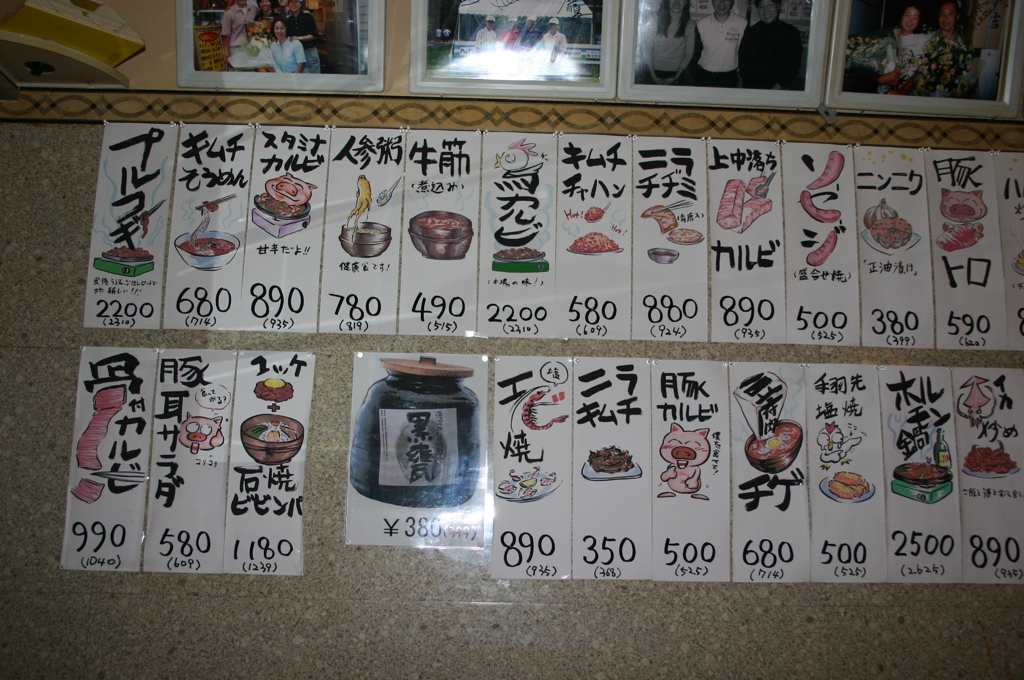 プルコギ
2200
(2310)
キムチ
そうめん
680
(714)
スタミナ
カルビ
甘辛だよ!!
890
(935)
人参粥
健康食です!
780
(819)
牛筋
(煮込み)
490
(515)
カルビ
(本場の味!)
2200
(2310)
キムチ
チャハン
Hot!
Hot!
580
(609)
ニラ
チヂミ
880
(924)
上中落ち
カルビ
890
(935)
ソーセージ
(盛合せ焼)
500
(525)
ニンニク
「正油漬け」
380
(399)
豚
トロ
590
(620)
骨付カルビ
990
(1040)
豚
耳サラダ
コリコリ
580
(609)
ユッケ
+
石焼
ビビンパ
1180
(1239)
黒甕
¥380(399)
エビ
塩
焼
890
(935)
ニラ
キムチ
350
(368)
豚
カルビ
500
(525)
チゲ
680
(714)
手羽先
塩焼
500
(525)
ホルモン
鍋
2500
(2625)
イカ
炒め
890
(935)